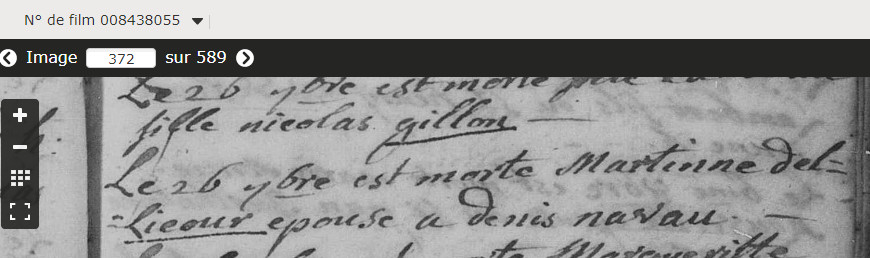 N° de film 008438055
Image 372 sur 589
Le 26 7bre est morte
fille nicolas gillon
Le 26 7bre est morte Martinne del=
=Licour epouse a denis navau
Margueritte